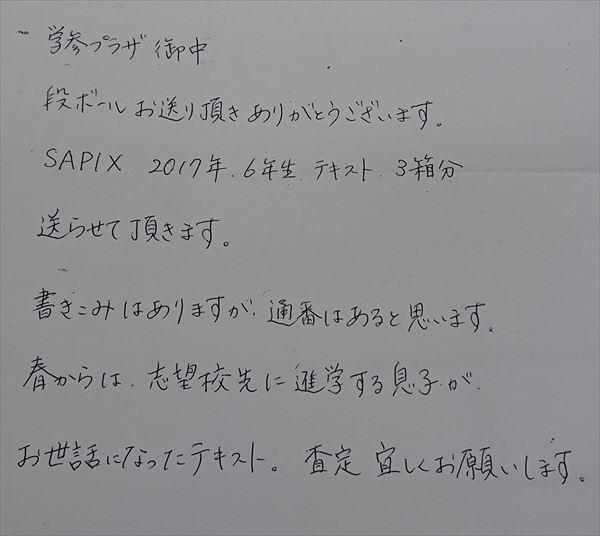 学参プラザ 御中
段ボール お送り頂き ありがとうございます。
SAPIX 2017年.6年生.テキスト.3箱分
送らせて頂きます。
書きこみはありますが、通番はあると思います。
春からは、志望校先に進学する息子が、
お世話になったテキスト。査定 宜しくお願いします。